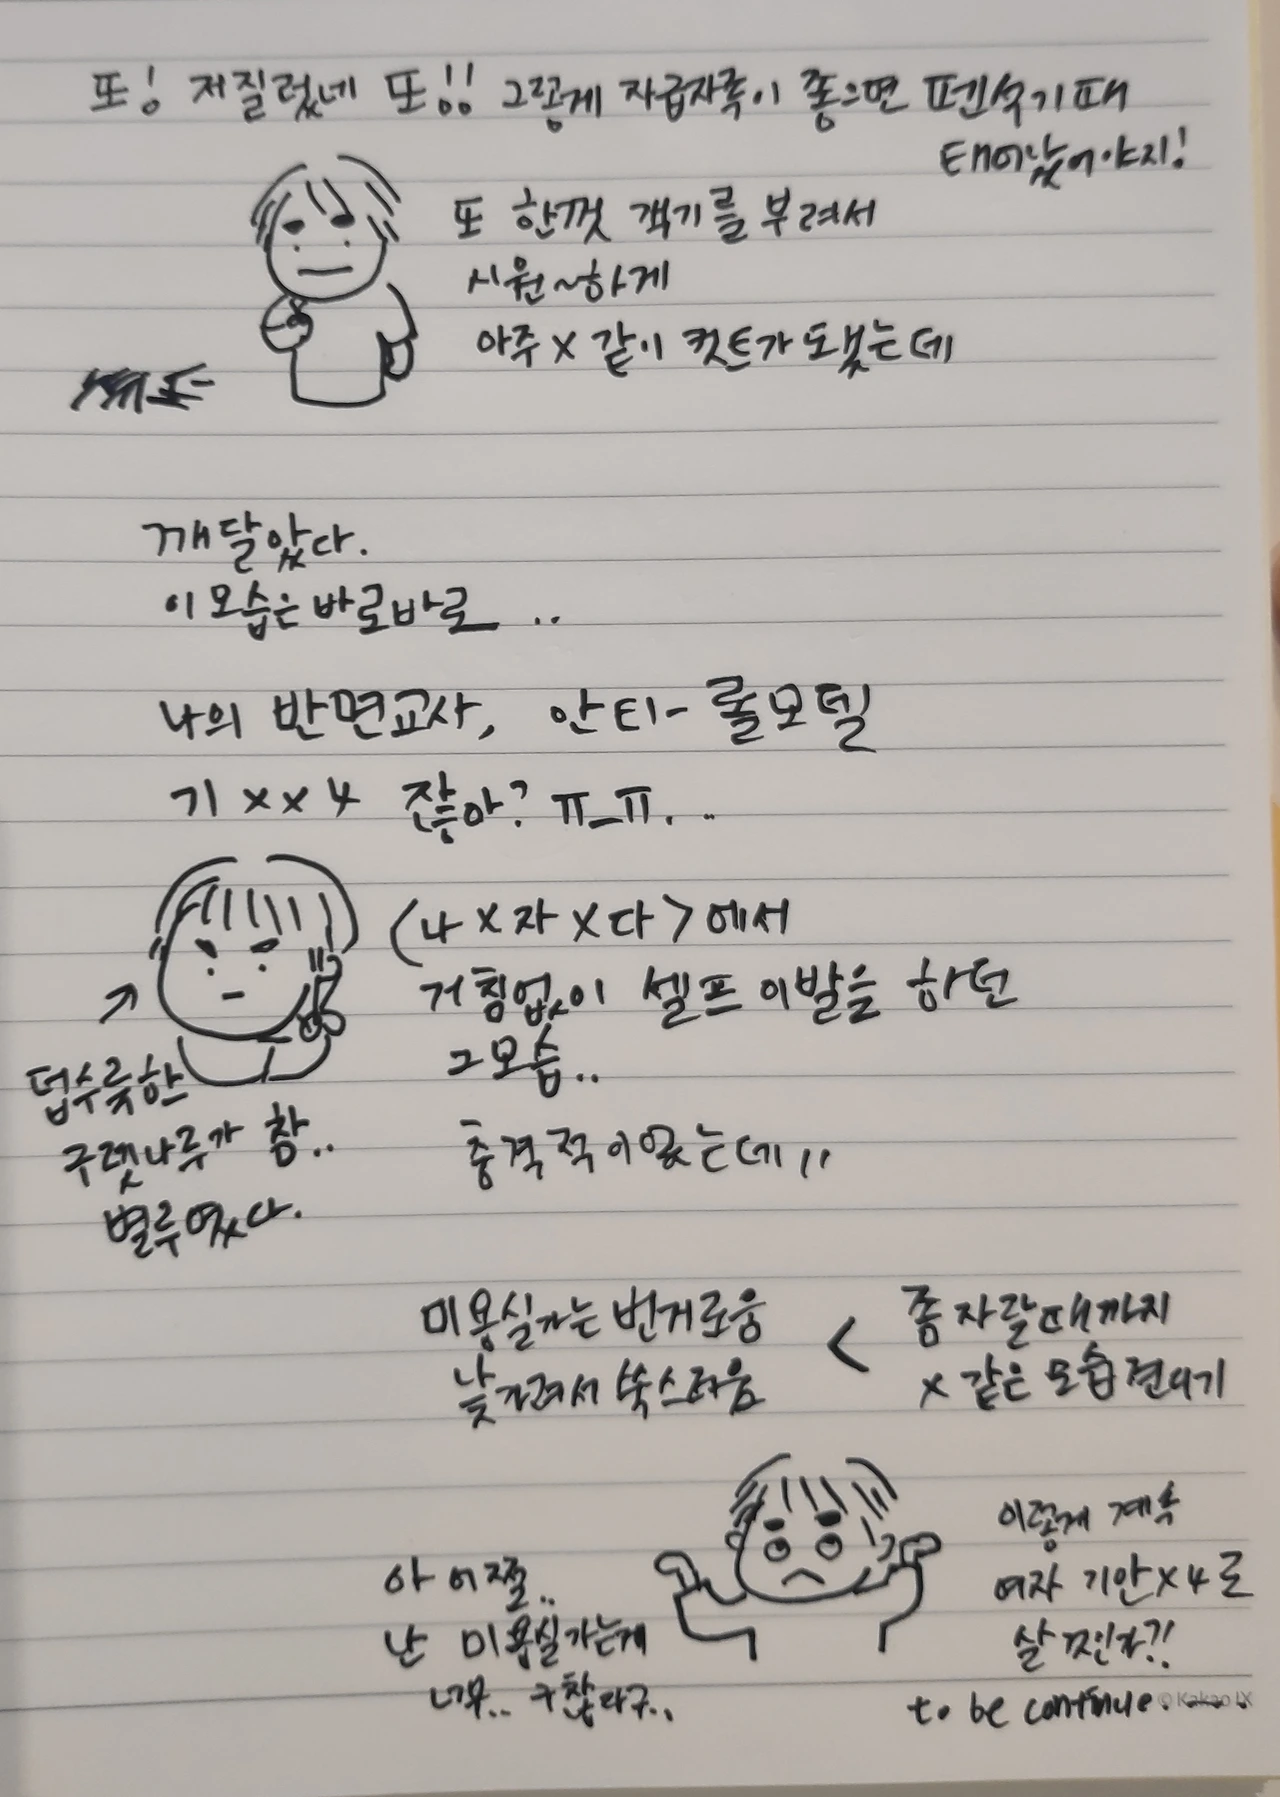 또! 저질렀네 또!! 그렇게 자급자족이 좋으면 펜석기때
태어났어야지!
또 한껏 객기를 부려서
시원~하게
아주 X 같이 컷트가 됐는데
깨달았다.
이 모습은 바로바로 ..
나의 반면교사, 안티-롤모델
기 x x 4 잖아? ㅠ_ㅠ...
<나 X 자 X 다>에서
거침없이 셀프 이발을 하던
그 모습..
충격적이었는데,,
덥수룩한
구렛나루가 참..
별루였다.
미용실가는 번거로움
낯가려서 쑥스러움
<
좀 자랄때까지
x 같은 모습 견디기
아 어쩔..
난 미용실가는게
너무.. 구찮다구..
이렇게 계속
여자 기안x4로
살 것인가?!
to be continue.....
© Kakao IX